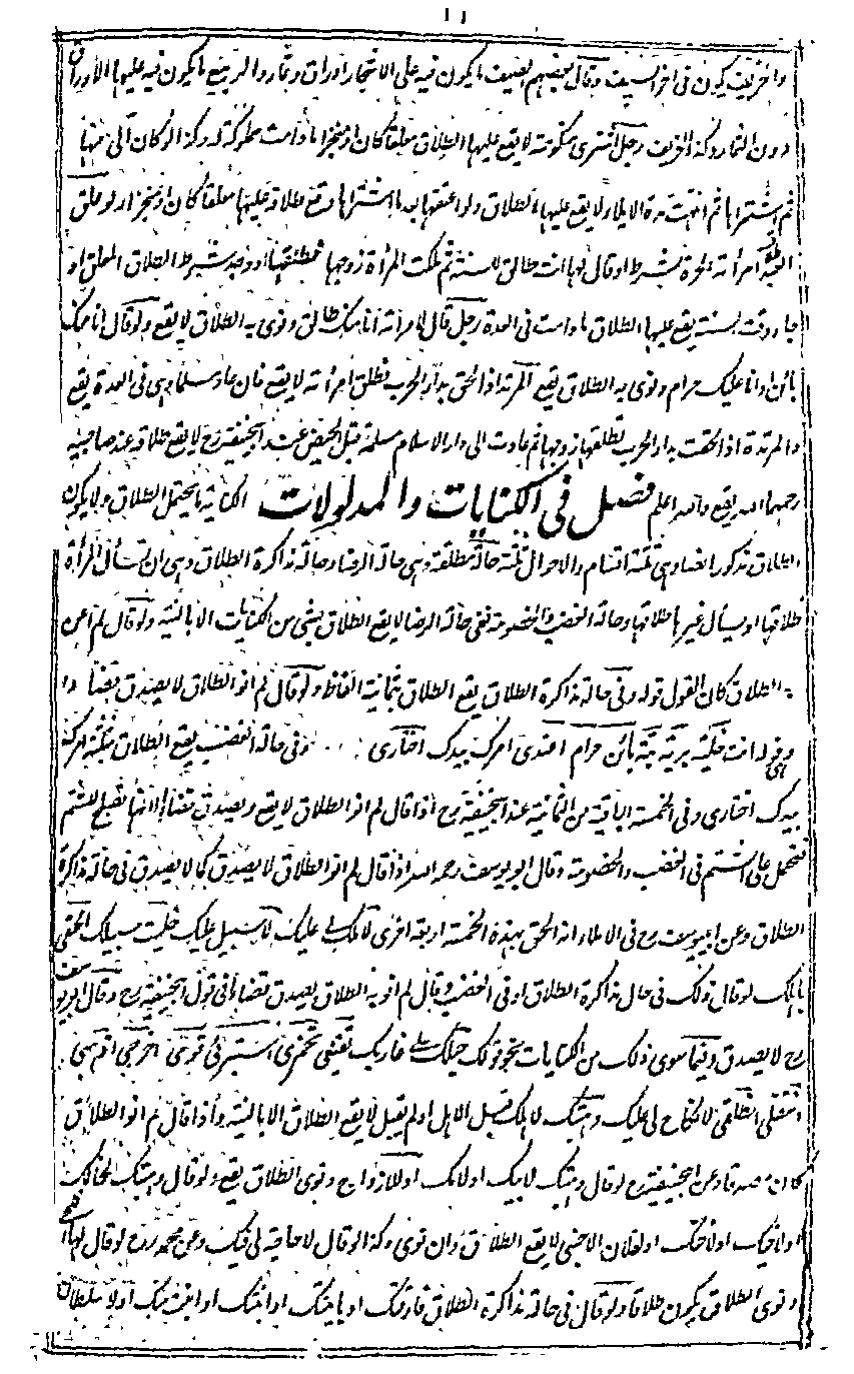 والخريف يكون فى اخر الصيف وقال بعضهم الصيف ما يكون فيه على الاشجار اوراق وثمار والربيع ما يكون فيه عليها الاوراق
دون الثمار وكذا الخريف رجل اشترى منكوحته لا يقع عليها الطلاق معلقا كان او منجزا ما دامت مملوكة له وكذا لو كان آلى منها
ثم اشتراها ثم انقضت مدة الايلاء لا يقع عليها الطلاق ولو اعتقها بعد ما اشتراها وقع طلاقه عليها معلقا كان او منجزا ولو علق
العبد طلاق امرأته الحرة بشرط او قال لها انت طالق للسنة ثم ملكت المرأة زوجها فاعتقته او وجد شرط الطلاق المعلق او
جاء وقت السنة يقع عليها الطلاق ما دامت فى العدة رجل قال لامرأته انا منك طالق ونوى به الطلاق لا يقع ولو قال انا منك
بائن او انا عليك حرام ونوى به الطلاق يقع المرتد اذا لحق بدار الحرب فطلق امرأته لا يقع فان عاد مسلما وهى فى العدة يقع
والمرتدة اذا لحقت بدار الحرب فطلقها زوجها ثم عادت الى دار الاسلام مسلمة قبل الحيض عند ابيحنيفة رح لا يقع طلاقه عند صاحبيه
رحمهما الله يقع والله اعلم فصل فى الكنايات والمدلولات الكناية ما يحتمل الطلاق ولا يكون
الطلاق مذكورا نصا وهى ثلثة اقسام والاحوال ثلثة حالة مطلقة وهى حالة الرضا وحالة مذاكرة الطلاق وهى ان تسأل المرأة
طلاقها او يسأل غيرها طلاقها وحالة الغضب والخصومة ففى حالة الرضا لا يقع الطلاق بشئ من الكنايات الا بالنية ولو قال لم اعن
به الطلاق كان القول قوله وفى حالة مذاكرة الطلاق يقع الطلاق بثمانية الفاظ ولو قال لم انو الطلاق لا يصدق قضاء
وهى قوله انت خلية برية بتة بائن حرام اعتدى امرك بيدك اختارى وفى حالة الغضب يقع الطلاق بثلثة امرك
بيدك اختارى وفى الخمسة الباقية من الثمانية عند ابيحنيفة رح اذا قال لم انو الطلاق لا يقع ويصدق قضاء لانها تصلح للشتم
فتحمل على الشتم فى الغضب والخصومة وقال ابو يوسف رحمه الله اذا قال لم انو الطلاق لا يصدق كما لا يصدق فى حالة مذاكرة
الطلاق وعن ابيوسف رح فى الاملاء انه الحق بهذه الخمسة اربعة اخرى لا ملك لى عليك لا سبيل لى عليك خليت سبيلك الحقى
باهلك لو قال ذلك فى حال مذاكرة الطلاق او فى الغضب وقال لم انو به الطلاق يصدق قضاء فى قول ابيحنيفة رح وقال ابو يوسف
رح لا يصدق وفيما سوى ذلك من الكنايات نحو قوله حبلك على غاربك تقنعى تخمرى استترى قومى اخرجى اذهبى
انتقلى انطلقى لا نكاح لى عليك وهبتك لاهلك قبل الاهل او لم يقبل لا يقع الطلاق الا بالنية واذا قال لم انو الطلاق
كان مصدقا وعن ابيحنيفة رح لو قال وهبتك لابيك او لامك او للازواج ونوى الطلاق يقع ولو قال وهبتك لخالك
او لاخيك او لاختك او لفلان الاجنبى لا يقع الطلاق وان نوى وكذا لو قال لا حاجة لى فيك وعن محمد رح لو قال لها
ونوى الطلاق يكون طلاقا ولو قال فى حالة مذاكرة الطلاق فارقتك او باينتك او ابنتك او ابنت منك او لا سلطان